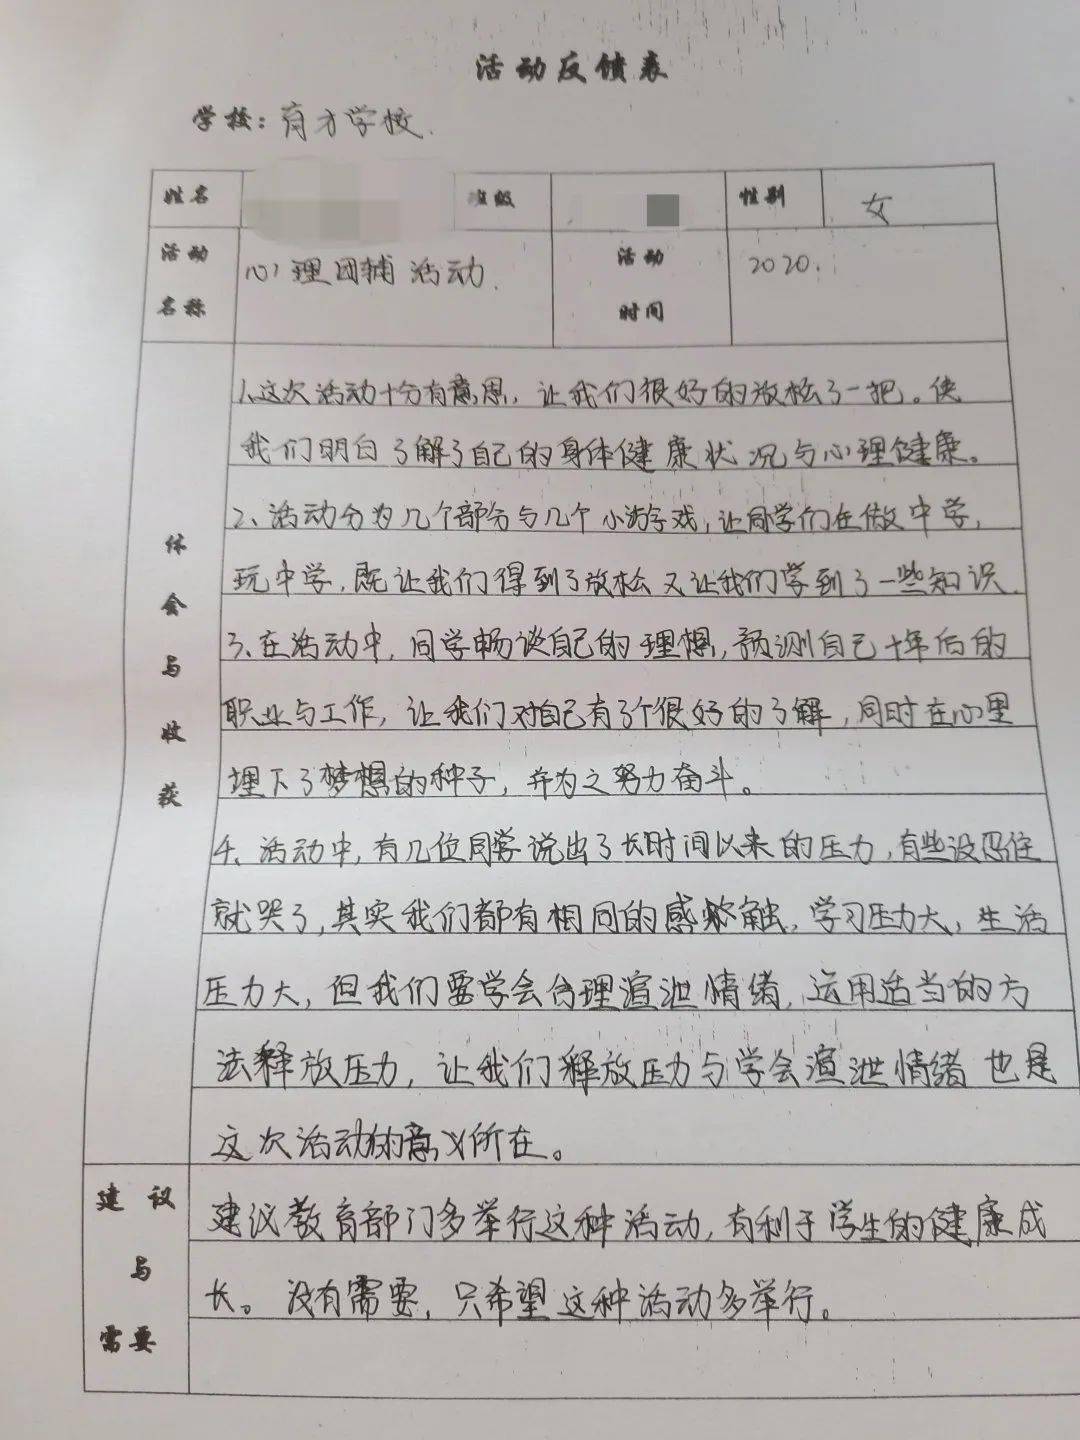 活动反馈表
学校：育才学校.
姓名 班级 性别 女
活动名称 心理团辅活动. 活动时间 2020.
体会与收获
1.这次活动十分有意思，让我们很好的放松了一把。使
我们明白了解了自己的身体健康状况与心理健康。
2、活动分为几个部分与几个小游戏，让同学们在做中学，
玩中学，既让我们得到了放松又让我们学到了一些知识.
3、在活动中，同学畅谈自己的理想，预测自己十年后的
职业与工作，让我们对自己有了个很好的了解，同时在心里
埋下了梦想的种子，并为之努力奋斗。
4、活动中，有几位同学说出了长时间以来的压力，有些没忍住
就哭了，其实我们都有相同的感触，学习压力大，生活
压力大，但我们要学会合理渲泄情绪，运用适当的方
法释放压力，让我们释放压力与学会渲泄情绪也是
这次活动的意义所在。
建议与需要
建议教育部门多举行这种活动，有利于学生的健康成
长。没有需要，只希望这种活动多举行。